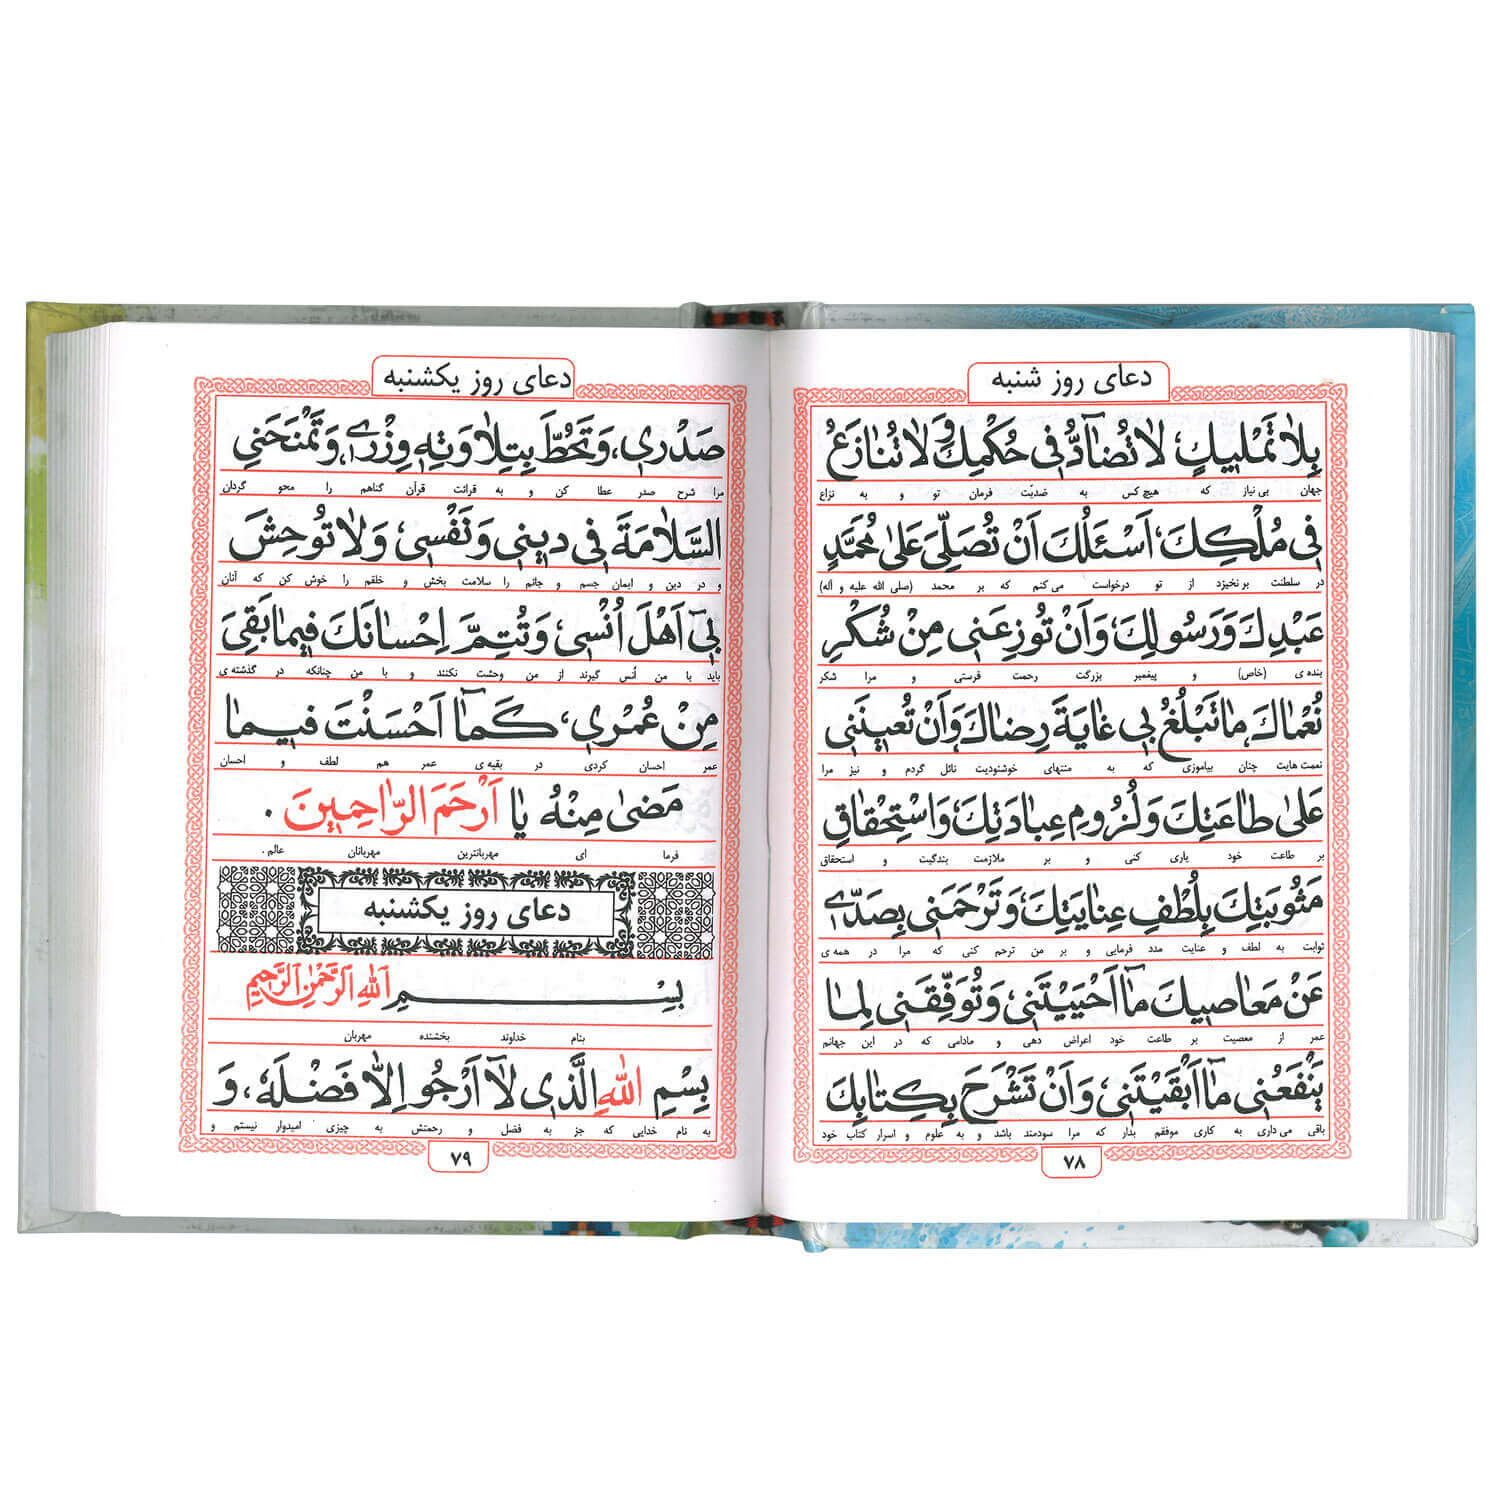 دعای روز شنبه
بِلا تَمْليكٍ، لا تُضآدُّ فى حُكْمِكَ وَ لا تُنازَعُ
جهان بی نیاز که هیچ کس به ضدیّت فرمان تو و به نزاع
فى مُلْكِكَ، اَسْئَلُكَ اَنْ تُصَلِّىَ عَلى مُحَمَّدٍ
در سلطنت بر نخیزد از تو درخواست می کنم که بر محمد (صلی الله علیه و آله)
عَبْدِكَ وَ رَسُولِكَ، وَ اَنْ تُوزِعَنى مِنْ شُكْرِ
بنده ی (خاص) و پیغمبر بزرگت رحمت فرستی و مرا شکر
نُعْماكَ، ما تَبْلُغُ بى غايَةَ رِضاكَ وَ اَنْ تُعينَنى
نعمت هایت چنان بیاموزی که به منتهای خوشنودیت نائل گردم و نیز مرا
عَلى طاعَتِكَ وَ لُزُومِ عِبادَتِكَ، وَ اسْتِحْقاقِ
بر طاعت خود یاری کنی و بر ملازمت بندگیت و استحقاق
مَثُوبَتِكَ بِلُطْفِ عِنايَتِكَ، وَ تَرْحَمَنى بِصَدّى
ثوابت به لطف و عنایت مدد فرمایی و بر من ترحم کنی که مرا در همه ی
عَنْ مَعاصيكَ مآ اَحْيَيْتَنى، وَ تُوَفِّقَنى لِما
عمر از معصیت بر طاعت خود اعراض دهی و مادامی که در این جهانم
يَنْفَعُنى مآ اَبْقَيْتَنى، وَ اَنْ تَشْرَحَ بِكِتابِكَ
باقی می داری به کاری موفقم بدار که مرا سودمند باشد و به علوم و اسرار کتاب خود
۷۸
دعای روز یکشنبه
صَدْرى، وَ تَحُطَّ بِتِلاوَتِهِ وِزْرى، وَ تَمْنَحَنِى
مرا شرح صدر عطا کن و به قرائت قرآن گناهم را محو گردان
السَّلامَةَ فى دينى وَ نَفْسى، وَ لا تُوحِشَ
و در دین و ایمان جسم و جانم را سلامت بخش و خلقم را خوش کن که آنان
بى اَهْلَ اُنْسى، وَ تُتِمَّ اِحْسانَكَ فيما بَقِىَ
باید با من اُنس گیرند از من وحشت نکنند و با من چنانکه در گذشته ی
مِنْ عُمْرى، كَمآ اَحْسَنْتَ فيما
عمر احسان کردی در بقیه ی عمر هم لطف و احسان
مَضى مِنْهُ يا اَرْحَمَ الرّاحِمينَ .
فرما ای مهربانترین مهربانان عالم .
دعای روز یکشنبه
بِسْمِ اللهِ الرَّحْمٰنِ الرَّحيمِ
بنام خداوند بخشنده مهربان
بِسْمِ اللهِ الَّذى لا اَرْجُو اِلاّ فَضْلَهُ، وَ
به نام خدایی که جز به فضل و رحمتش به چیزی امیدوار نیستم و
۷۹